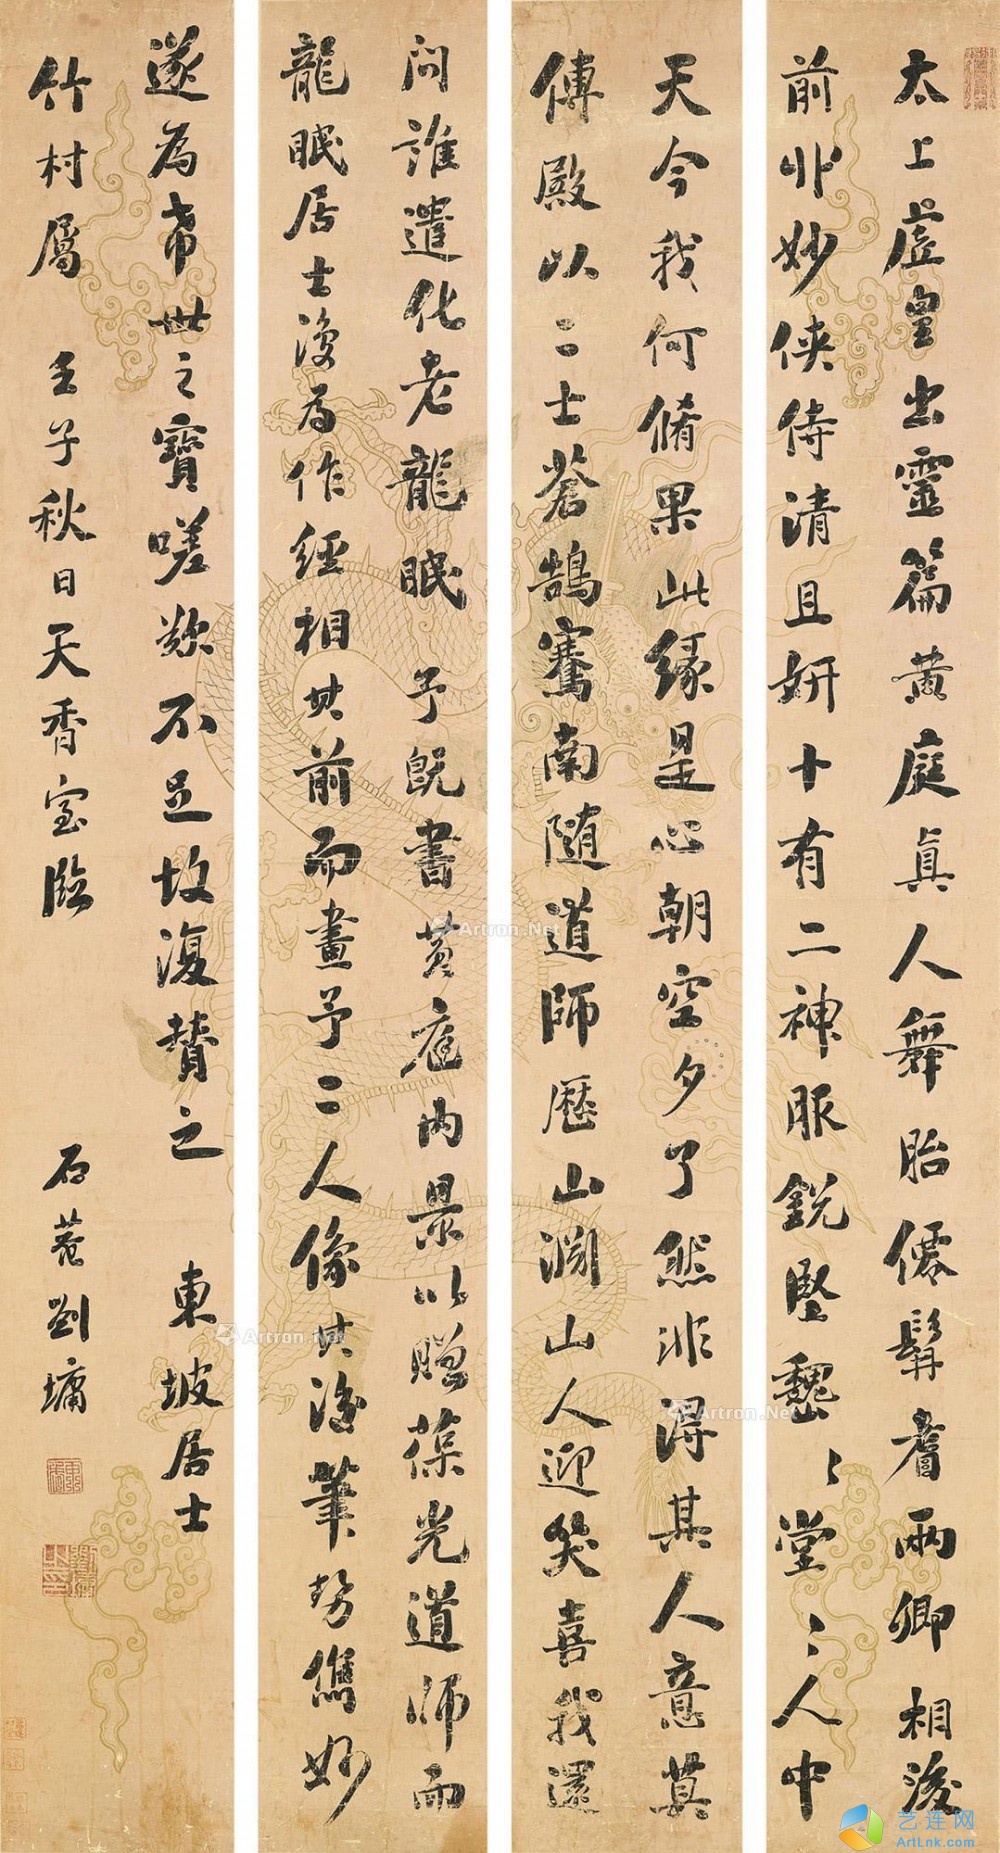 太上虛皇出靈篇黃庭真人舞胎僊髯耆兩卿相後
前丱妙俠侍清且妍十有二神服銳堅巍〻堂〻人中
天今我何脩果此緣是心朝空夕了然非淂其人意莫
傳殿以二士蒼鵠騫南随道師歷山淵山人迎笑喜我還
问誰遣化老龍眠 予既書黃庭内景以贈葆光道師而
龍眠居士復為作經相其前而畫予二人像其後筆勢儁妙
遂為希世之寶嗟歎不足故復贊之 東坡居士
竹村屬 壬子秋日天香室臨 石菴劉墉
Artron.Net
Artron.Net
Artron.Net
艺连网
ArtLnk.com